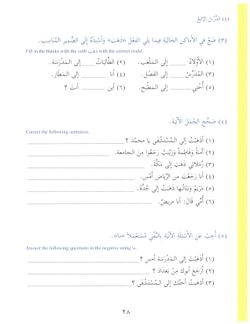 (٤) الدَّرْسُ الرَّابِعُ
(٣) ضَعْ فِي الأَمَاكِنِ الخَالِيَةِ فِيمَا يَلِي الفِعْلَ «ذَهَبَ» وَأَسْنِدْهُ إِلَى الضَّمِيرِ المُنَاسِبِ.
Fill in the blanks with the verb ذهب with the correct
(١) الأَوْلَادُ ــــــ إِلَى المَلْعَبِ. (٢) الطَّالِبَاتُ ــــــ إِلَى المَدْرَسَةِ.
(٣) المُدَرِّسُ ــــــ إِلَى الفَصْلِ. (٤) أَنَا ــــــ إِلَى المَطَارِ.
(٥) أُخْتِي ــــــ إِلَى المَطْبَخِ. (٦) أَيْنَ ــــــ أَنْتَ ؟
(٤) صَحِّحِ الجُمَلَ الآتِيَةَ.
Correct the following sentences.
(١) أَذَهَبْتُ إِلَى المُسْتَشْفَى يَا مُحَمَّدُ ؟
(٢) وَفَاطِمَةُ وَزَيْنَبُ رَجَعُوا مِنَ الجَامِعَةِ.
(٣) زُمَلَائِي ذَهَبَ إِلَى مَكَّةَ.
(٤) أَنَا رَجَعَتْ مِنَ الرِّيَاضِ أَمْسِ.
(٥) مَرْيَمُ وَبَنَاتُهَا ذَهَبَتْ إِلَى جُدَّةَ.
(٦) أُمِّي قَالَ: أَنَا مَرِيضٌ.
(٥) أَجِبْ عَنِ الأَسْئِلَةِ الآتِيَةِ بِالنَّفْيِ مُسْتَعْمِلًا «مَا».
Answer the following questions in the negative using ما.
(١) أَذَهَبْتَ إِلَى المَدْرَسَةِ أَمْسِ ؟
(٢) أَرَجَعَ أَبُوكَ مِنْ بَغْدَادَ ؟
(٣) أَذَهَبَتْ أُخْتُكَ إِلَى المُسْتَشْفَى ؟
٢٨